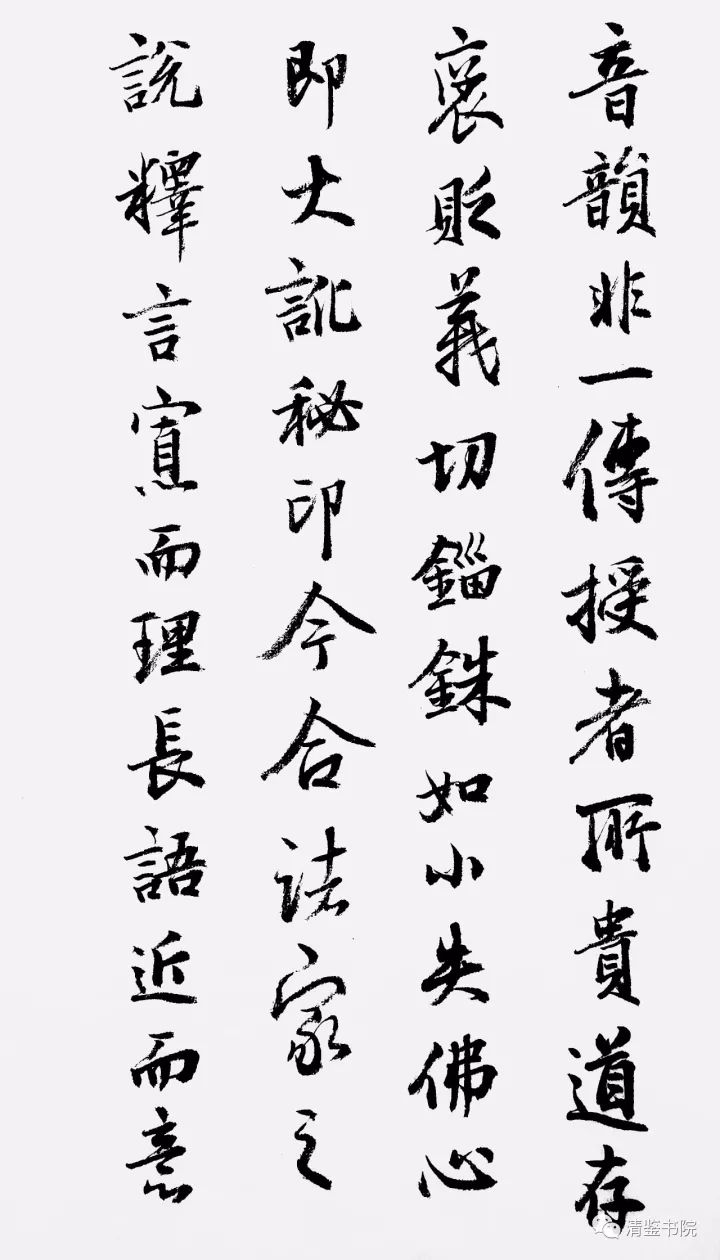 音韻非一傳授者所貴道存
褒貶義切錙銖如小失佛心
即大訛秘印今合諸家之
說釋言寡而理長語近而意
清鉴书院